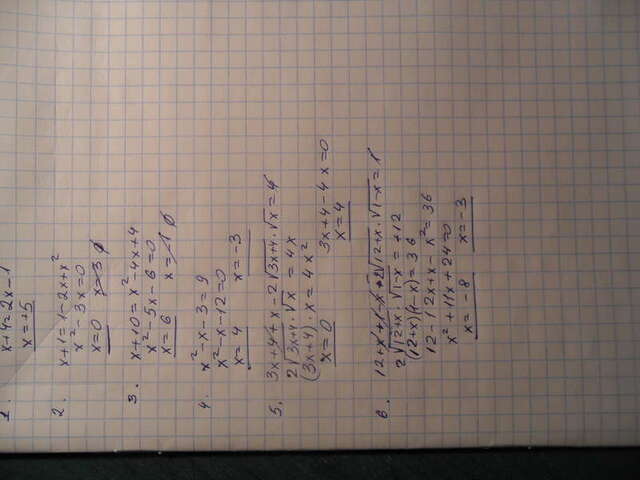 1. x+4=2x-1
x=+5
2. x+1=1-2x+x²
x²-3x=0
x=0 x=3 ∅
3. x+10=x²-4x+4
x²-5x-6=0
x=6 x=-1 ∅
4. x²-x-3=9
x²-x-12=0
x=4 x=-3
5. 3x+4+x-2√3x+4·√x=4
2√3x+4·√x=4x
(3x+4)·x=4x²
x=0 3x+4-4x=0
x=4
6. 12+x+1-x+2√12+x·√1-x=1
2√12+x·√1-x=+12
(12+x)(1-x)=36
12-12x+x-x²=36
x²+11x+24=0
x=-8 x=-3